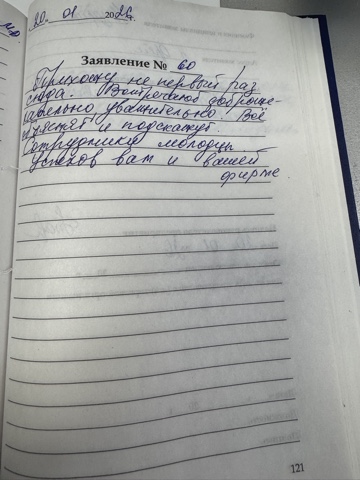 20. 01 2026г.
Заявление № 60
Прихожу не первый раз
сюда. Встречают доброже-
лательно уважительно. Всё
объяснят и подскажут.
Сотрудники молодцы.
Успехов вам и вашей
фирме
121